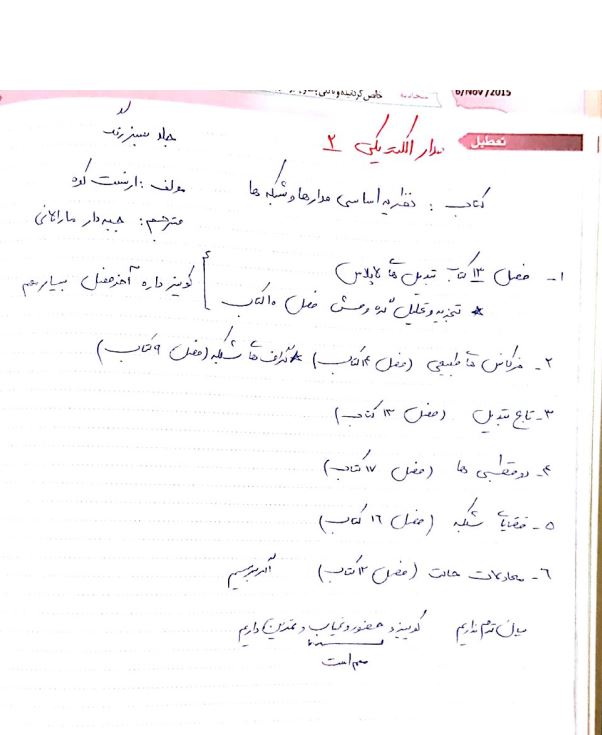 6/Nov/2015
تعطیل
مدار الکتریکی ۲
جلد سبز رنگ
کتاب : نظریه اساسی مدارها و شبکه ها
مولف : ارنست کوه
مترجم : جبه دار مارالانی
۱- فصل ۱۳ کتاب تبدیل ها لاپلاس
* تجزیه و تحلیل گره و مش فصل ۱۰ کتاب
کوییز داره آخر فصل بسیار مهم
۲- فرکانس ها طبیعی (فصل ۱۴ کتاب) * گراف ها شبکه (فصل ۹ کتاب)
۳- تابع تبدیل (فصل ۱۳ کتاب)
۴- دو قطبی ها (فصل ۱۷ کتاب)
۵- قضایا شبکه (فصل ۱۶ کتاب)
۶- معادلات حالت (فصل ۱۲ کتاب) اگر برسیم
میان ترم نداریم کوییز و حضور و غیاب و تمرین داریم
مهم است